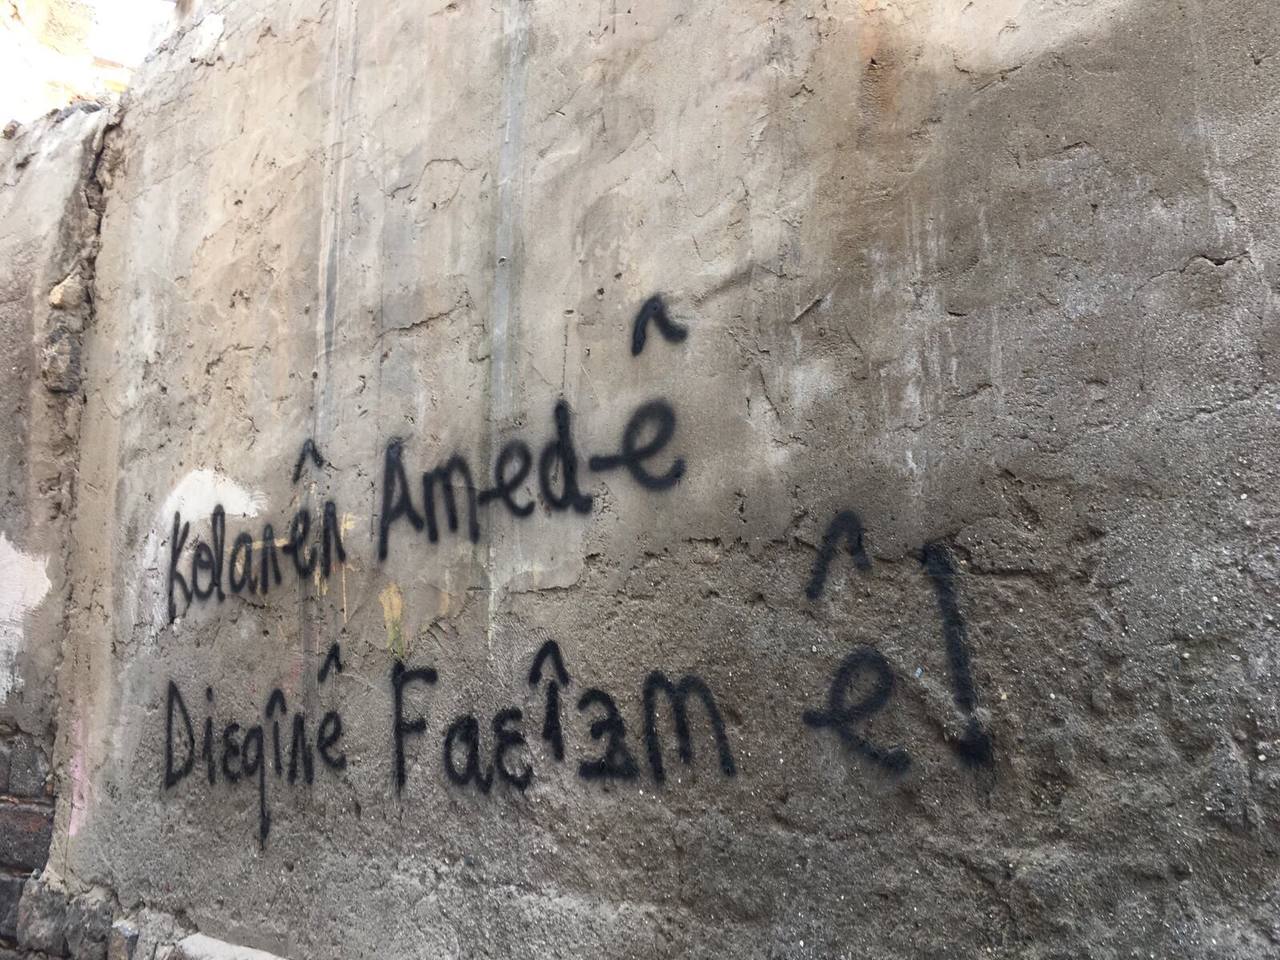 Kolanên Amedê
Disqînê Fasîzm ê!